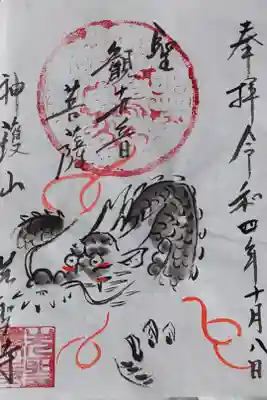 奉拝 令和四年十月八日
聖
観世音
菩薩
神護山 先聖寺